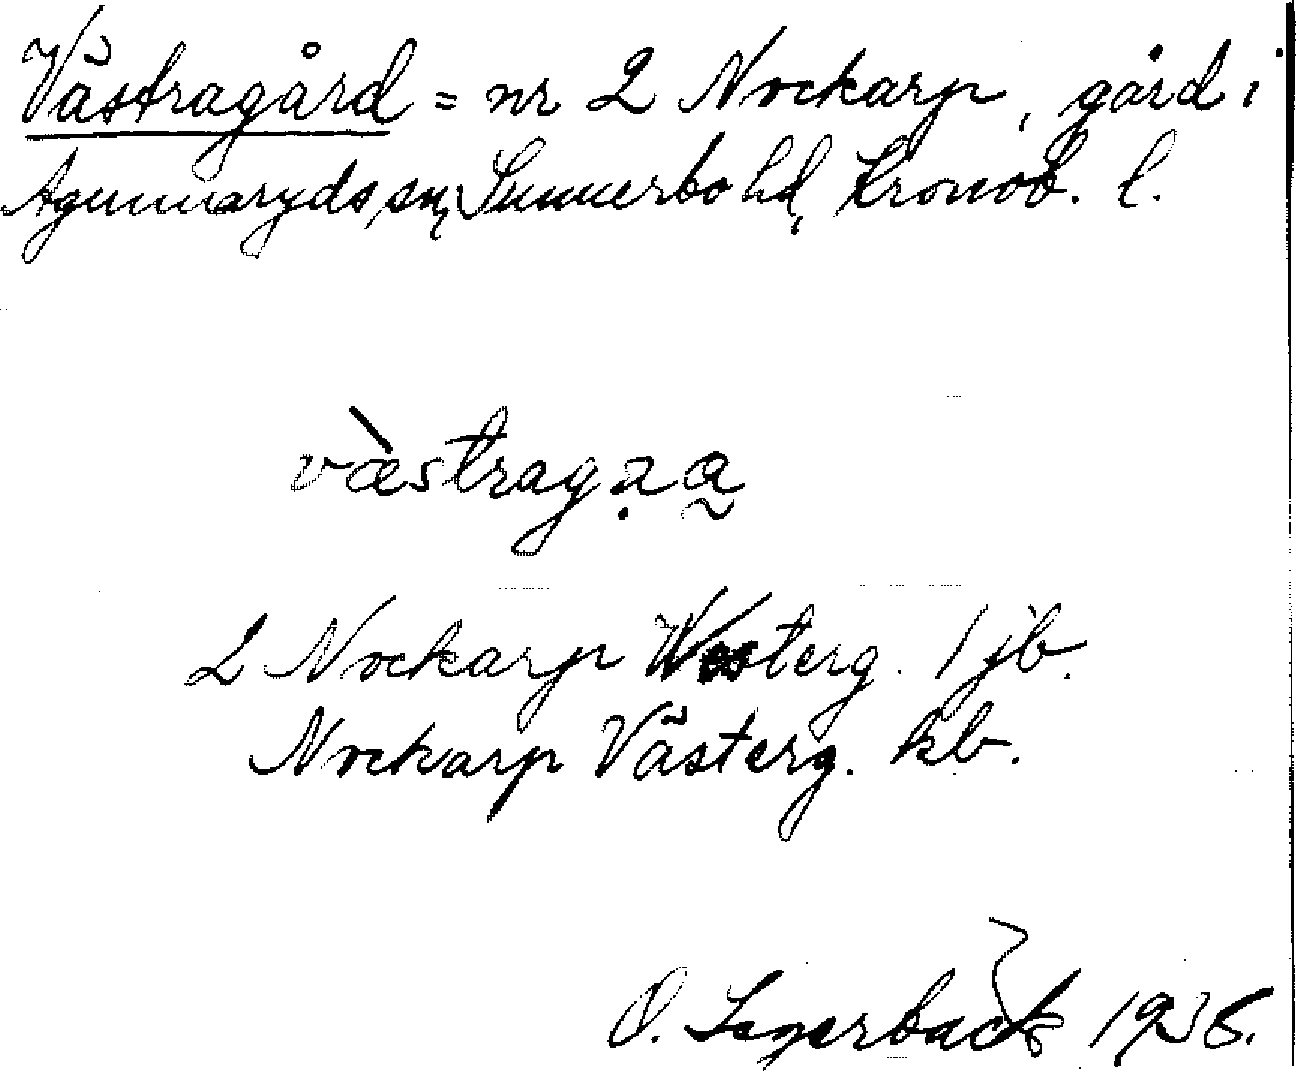 Västragård = nr 2 Nockarp, gård i
Agunnaryds sn, Sunnerbo hd, Kronob. l.
vàestragạa̰
2 Nockarp Westerg. 1 jb.
Nockarp Västerg. kb.
O. Segerbäck 1936.